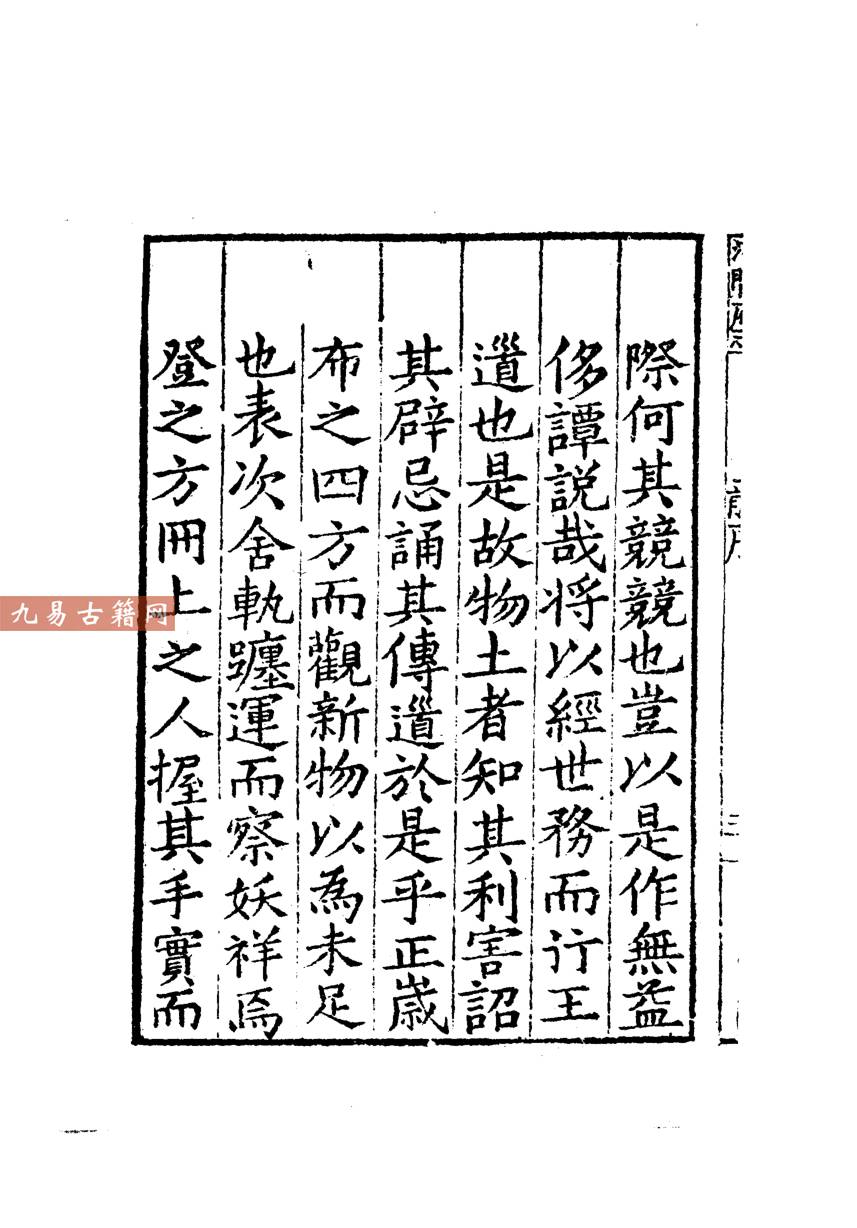 際何其競競也豈以是作無益
侈譚説哉将以經世務而行王
道也是故物土者知其利害詔
其辟忌誦其傳道於是乎正歲
布之四方而觀新物以為未足
也表次舍軌躔運而察妖祥焉
登之方冊上之人握其手實而
九易古籍网